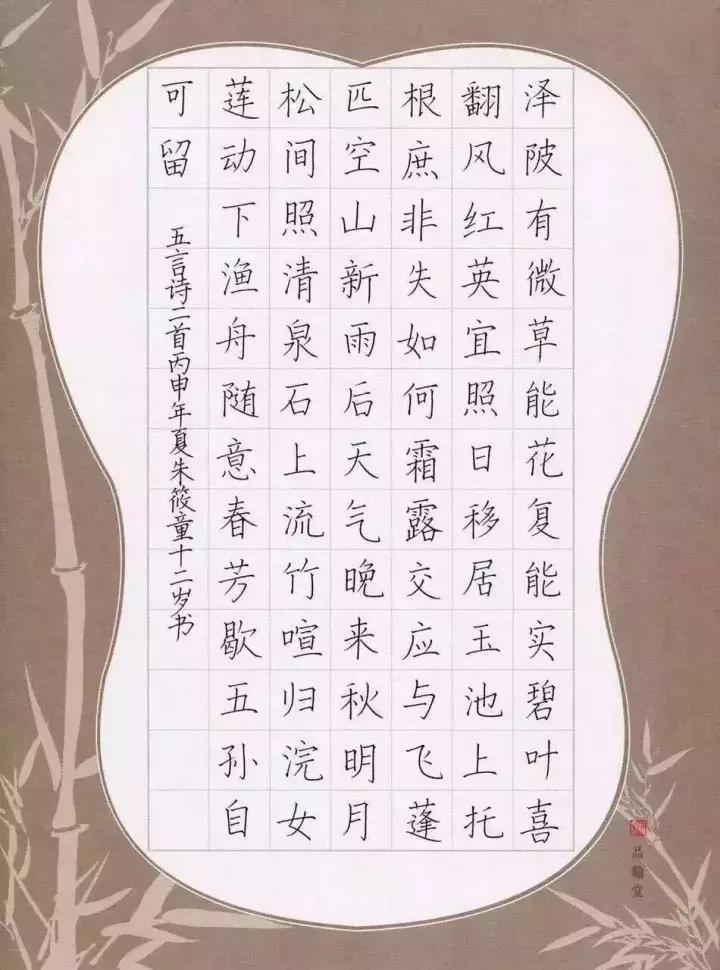 泽陂有微草能花复能实碧叶喜
翻风红英宜照日移居玉池上托
根庶非失如何霜露交应与飞蓬
匹空山新雨后天气晚来秋明月
松间照清泉石上流竹喧归浣女
莲动下渔舟随意春芳歇五孙自
可留
五言诗二首丙申年夏朱筱童十二岁书
品翰堂